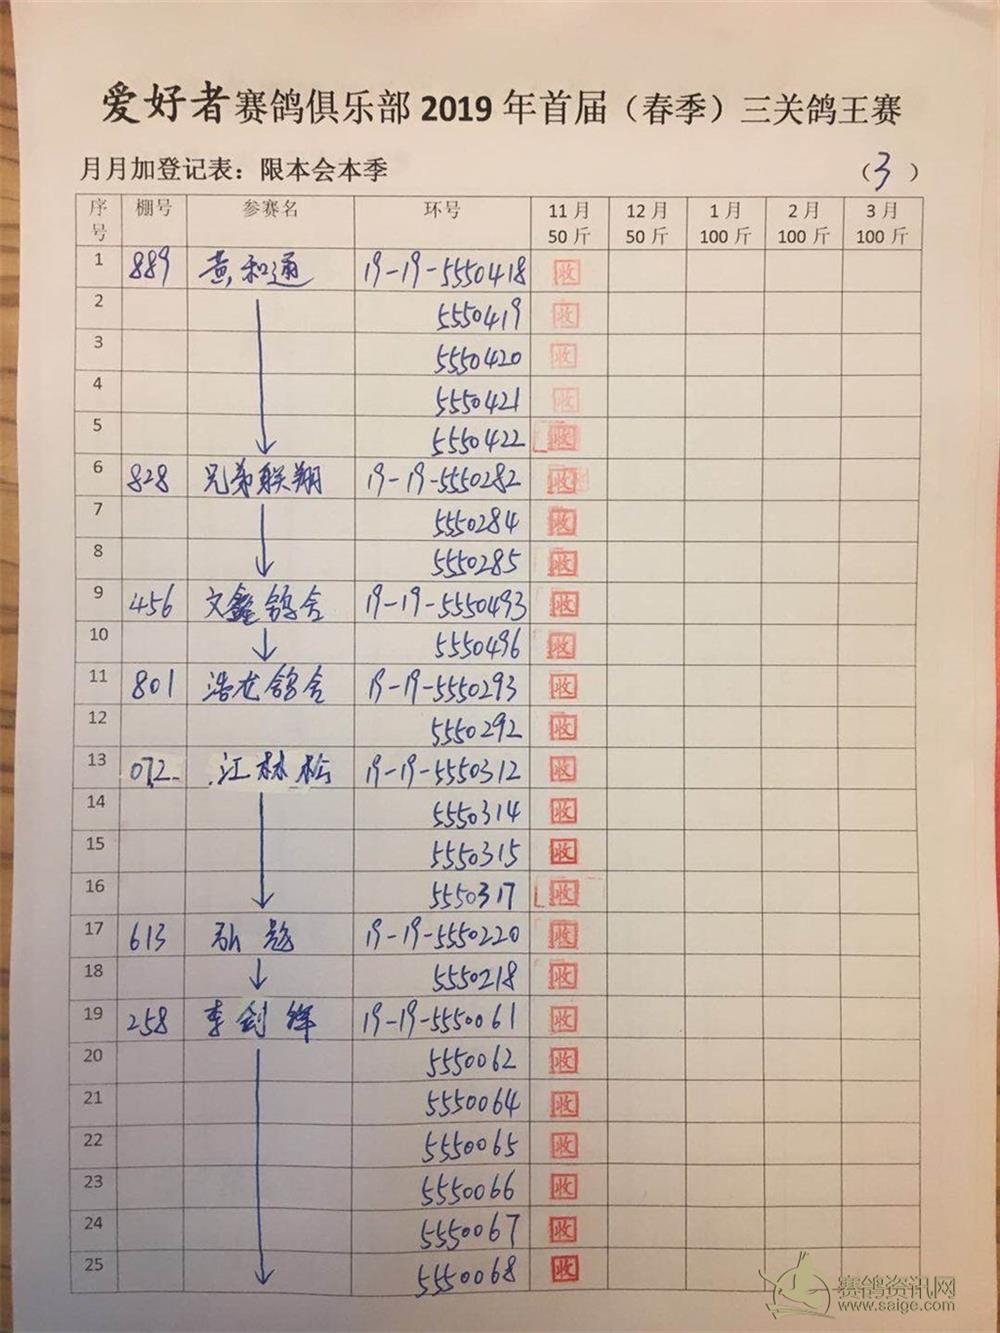 爱好者赛鸽俱乐部 2019 年首届（春季）三关鸽王赛
月月加登记表：限本会本季 （3）
序号 棚号 参赛名 环号 11月50斤 12月50斤 1月100斤 2月100斤 3月100斤
1 889 黄和通 19-19-5550418 收
2 5550419 收
3 5550420 收
4 5550421 收
5 5550422 收
6 828 兄弟联翔 19-19-5550282 收
7 5550284 收
8 5550285 收
9 456 文鑫鸽舍 19-19-5550493 收
10 5550496 收
11 801 浩龙鸽舍 19-19-5550293 收
12 5550292 收
13 072 江林松 19-19-5550312 收
14 5550314 收
15 5550315 收
16 5550317 收
17 613 弘 19-19-5550220 收
18 5550218 收
19 258 李剑辉 19-19-5550061 收
20 5550062 收
21 5550064 收
22 5550065 收
23 5550066 收
24 5550067 收
25 5550068 收
赛鸽资讯网
www.saige.com